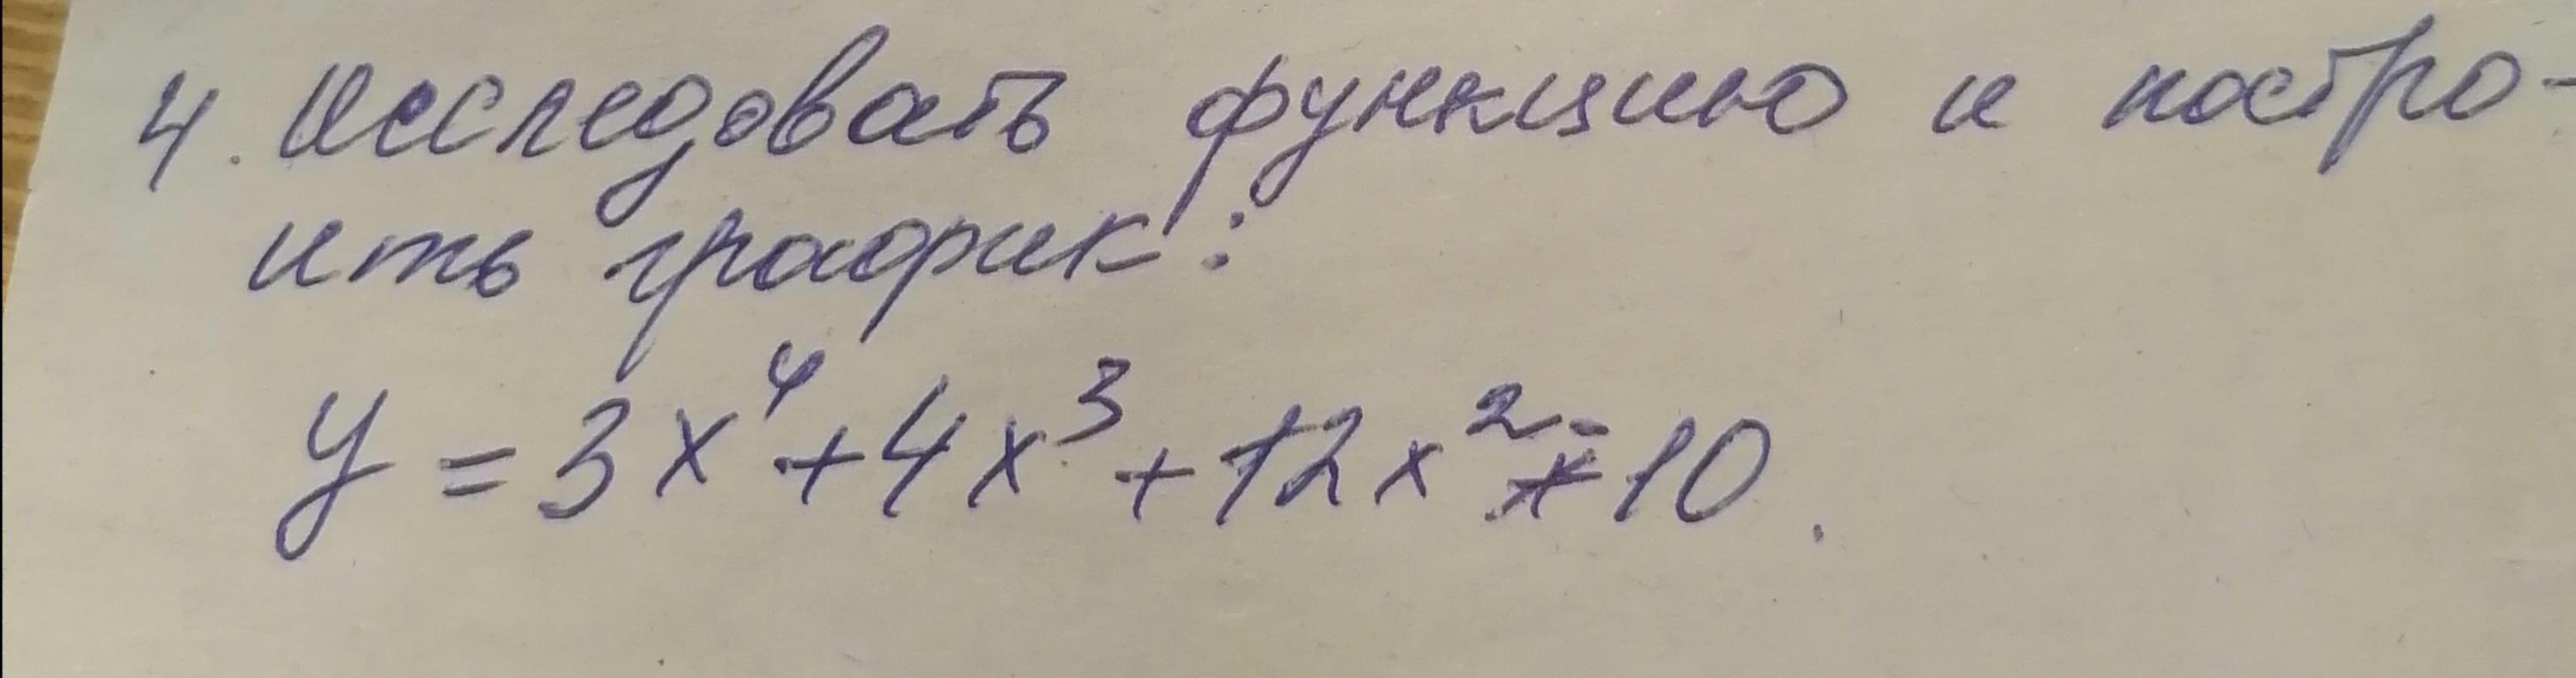 4. Исследовать функцию и постро-
ить график:
y = 3x⁴ + 4x³ + 12x² - 10.